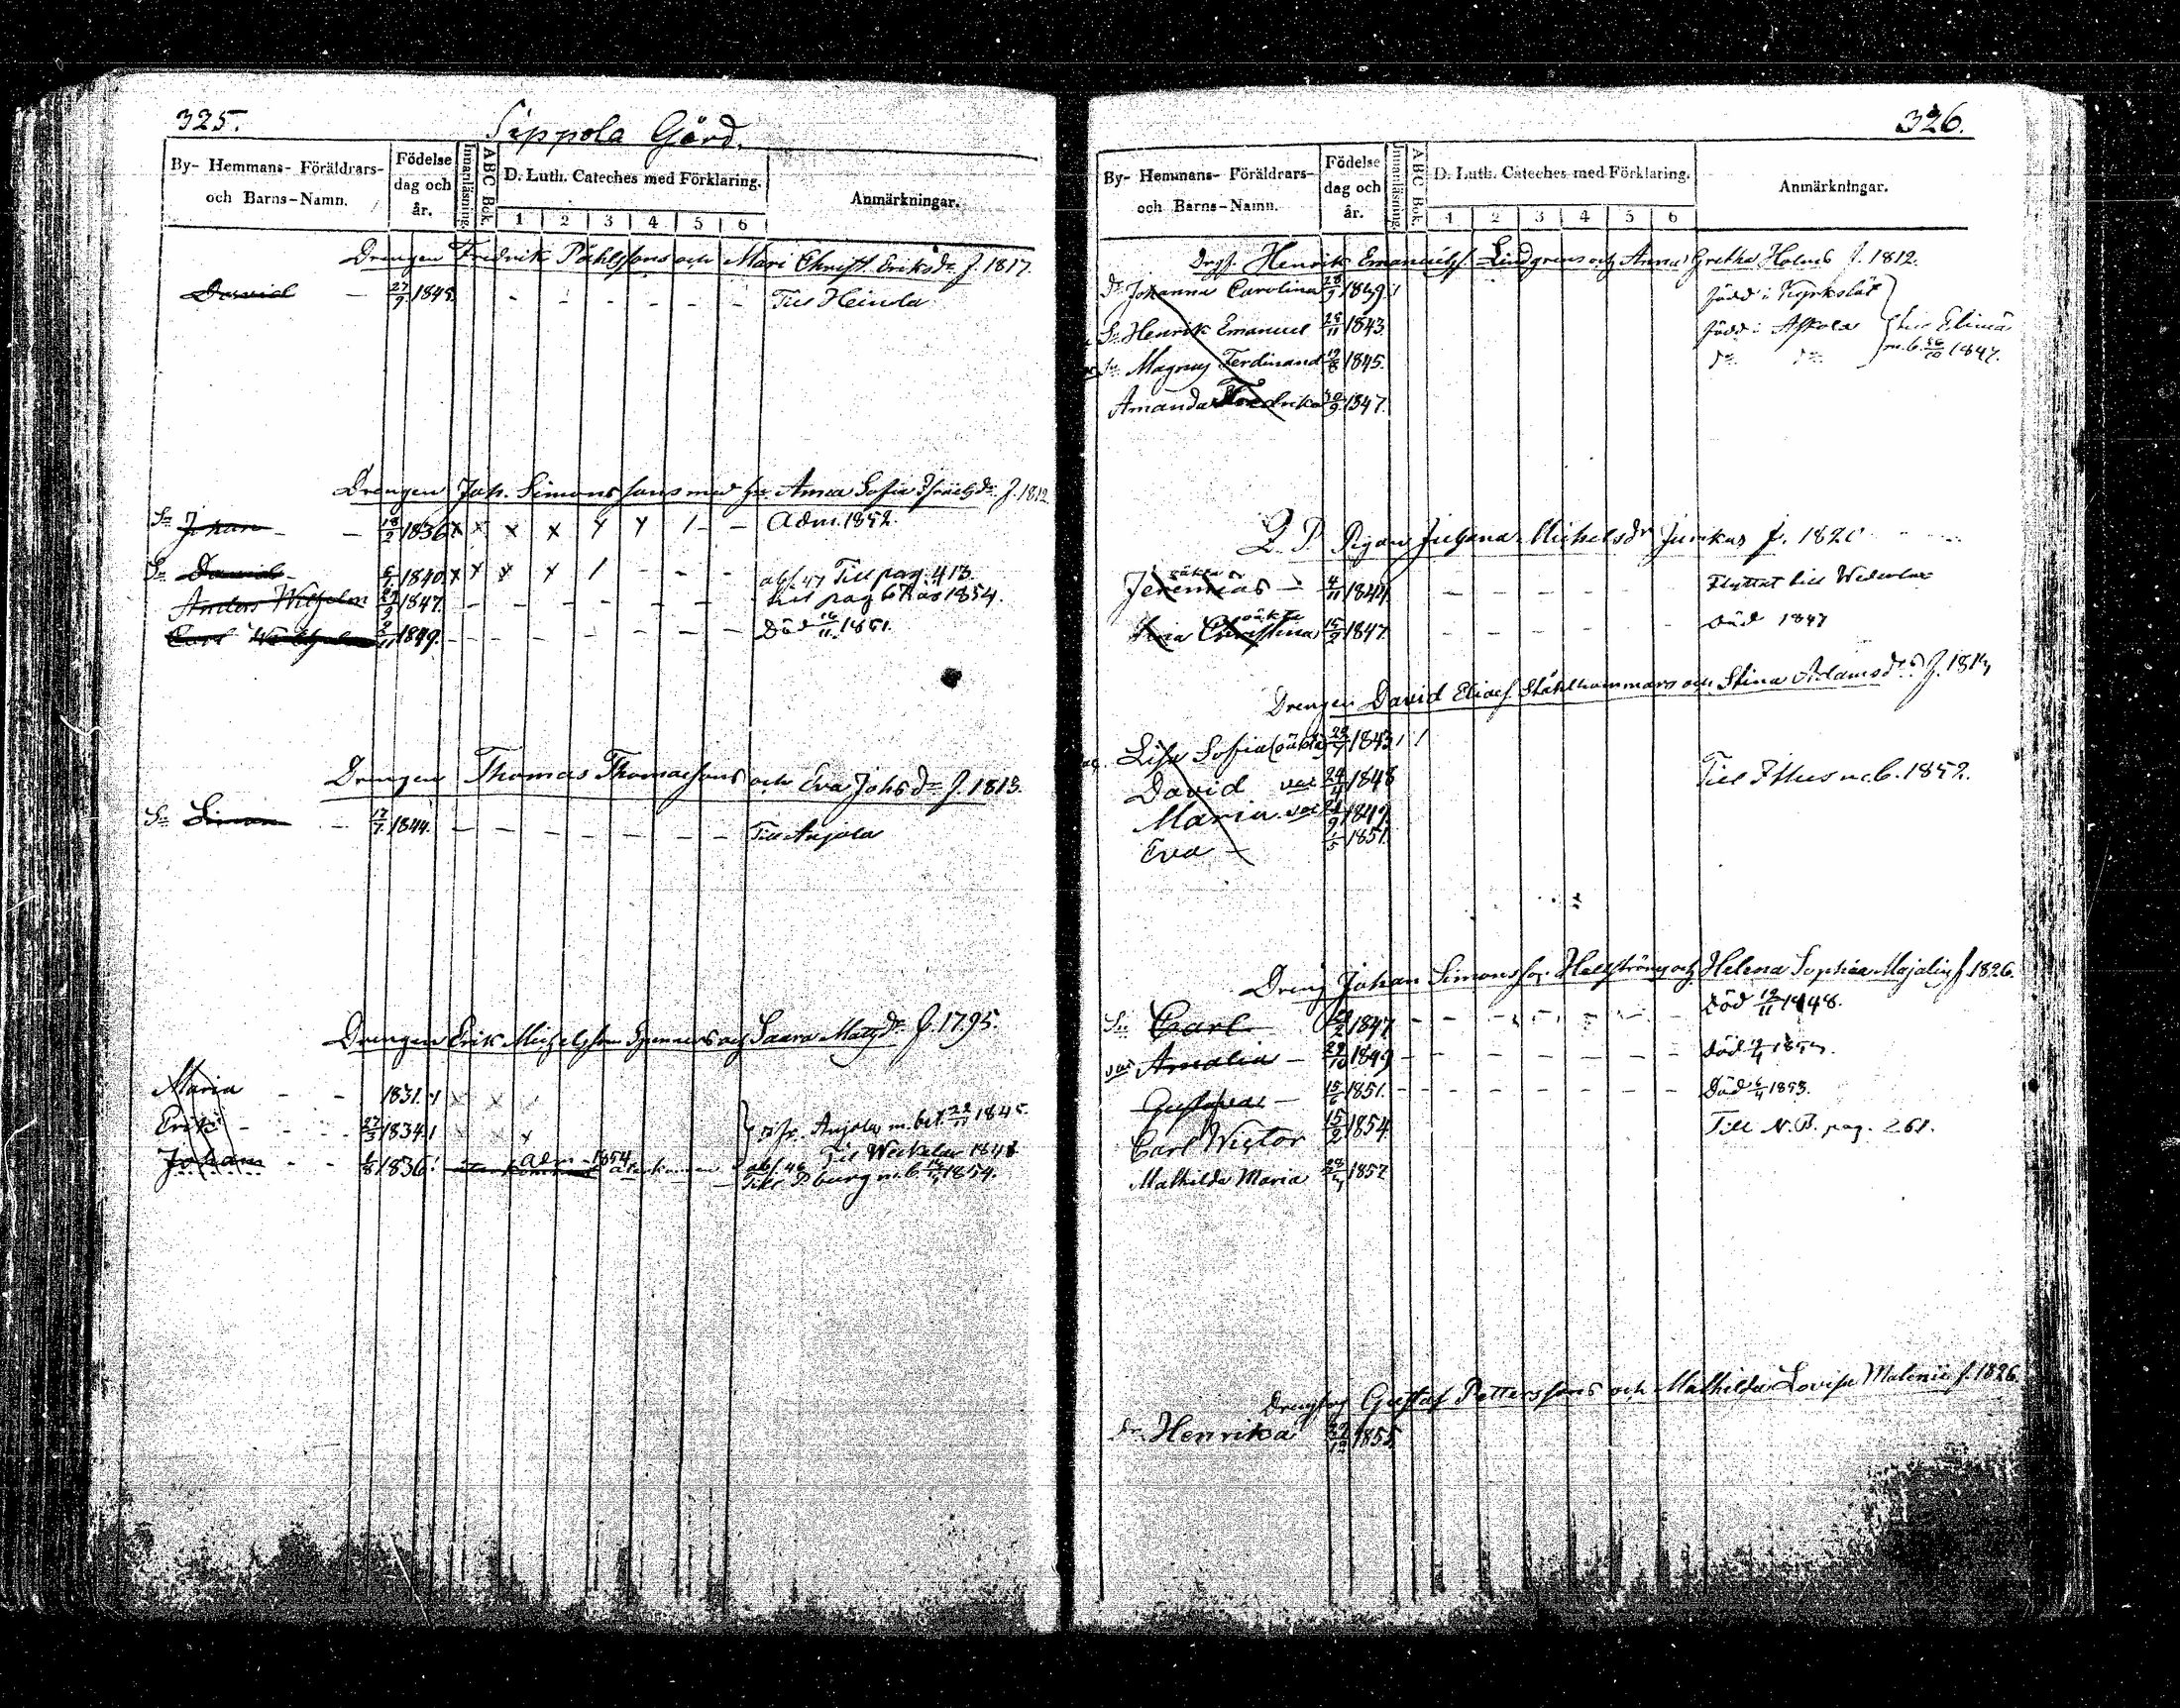 325.
Sippola Gård.
By- Hemmans- Föräldrars- och Barns-Namn.
Födelse dag och år.
Innanläsning.
ABC Bok.
D. Luth. Cateches med Förklaring.
1 2 3 4 5 6
Anmärkningar.
Drengen Fredrik Påhlssons och Mari Christ. Eriksdr f. 1817.
David – 27/9 1845. - - - - - - Till Heinola
Drengen Joh. Simonssons med hu Anna Sofia Israelsdr f. 1812
Sn Johan – – 18/2 1836 x x x x Y Y 1 – – Adm. 1852.
Sn David – 1840. x x x x 1 - - - abs. 47 Till pag. 413.
Anders Wilhelm 29/9 1847. – – – – – – – till pag 1854.
Carl Wilhelm 9/11 1849. – – – – – – – Död 16/11 1851.
Drengen Thomas Thomassons och Eva Johsdr f. 1813.
Sn Simon – 17/7 1844. – – – – – – – Till Anjala
Drengen Erik Michelsson Spenners och Saara Matsdr f. 1795.
Maria – – 1831.
Erik – – – 27/3 1834 Anjala m. bet. 22/11 1845.
Till Weckelax
Johan – – 1/8 1836 Adm – 1854 återkommen abs. 46
Till Pburg m. b. 1854.
326.
By- Hemmans- Föräldrars- och Barns-Namn.
Födelse dag och år.
Innanläsning.
ABC Bok.
D. Luth. Cateches med Förklaring.
1 2 3 4 5 6
Anmärkningar.
Drgs. Henrik Emanuelss. Lindgrens och Anna Gretha Holms f. 1812.
Dr Johanna Carolina 28/9 1839 född i Kyrkslät
Sn Henrik Emanuel 25/11 1843. född i Askola till Elimä
Sn Magnus Ferdinand 19/8 1845. dn dn m. b. 26/10 1847.
Amanda Fredrika 30/9 1847.
Q. P. Pigan Juliana Michelsdr Junkas f. 1820
Jeremias oäkta – 4/11 1844. – – – – – – Flyttat till Wederlax
Christina oäkta 15/2 1847. – – – – – – Död 1847
Drengen David Eliass. Ståhlhammars och Stina Adamsdrs f.
Lisa Sofia (oäkta) 1843
David vac 24/4 1848 Till Itis m. b. 1852.
Maria vac 1849.
Eva – 1/5 1851.
Dreng Johan Simonsson Hellströms och Helena Sophia Majalin f. 1826.
Sn Carl 1847 – – – – – – – Död 12/11 1848.
vac Amalia – 29/10 1849 – – – – – – – Död
Gustava – 15/6 1851. – – – – – – – Död 6/4 1853.
Carl Wictor 15/2 1854 Till N. B. pag. 261.
Mathilda Maria 1852
Drengen Gustaf Petterssons och Mathilda Lovisa Malenii f. 1826.
Dr Henrika 1855